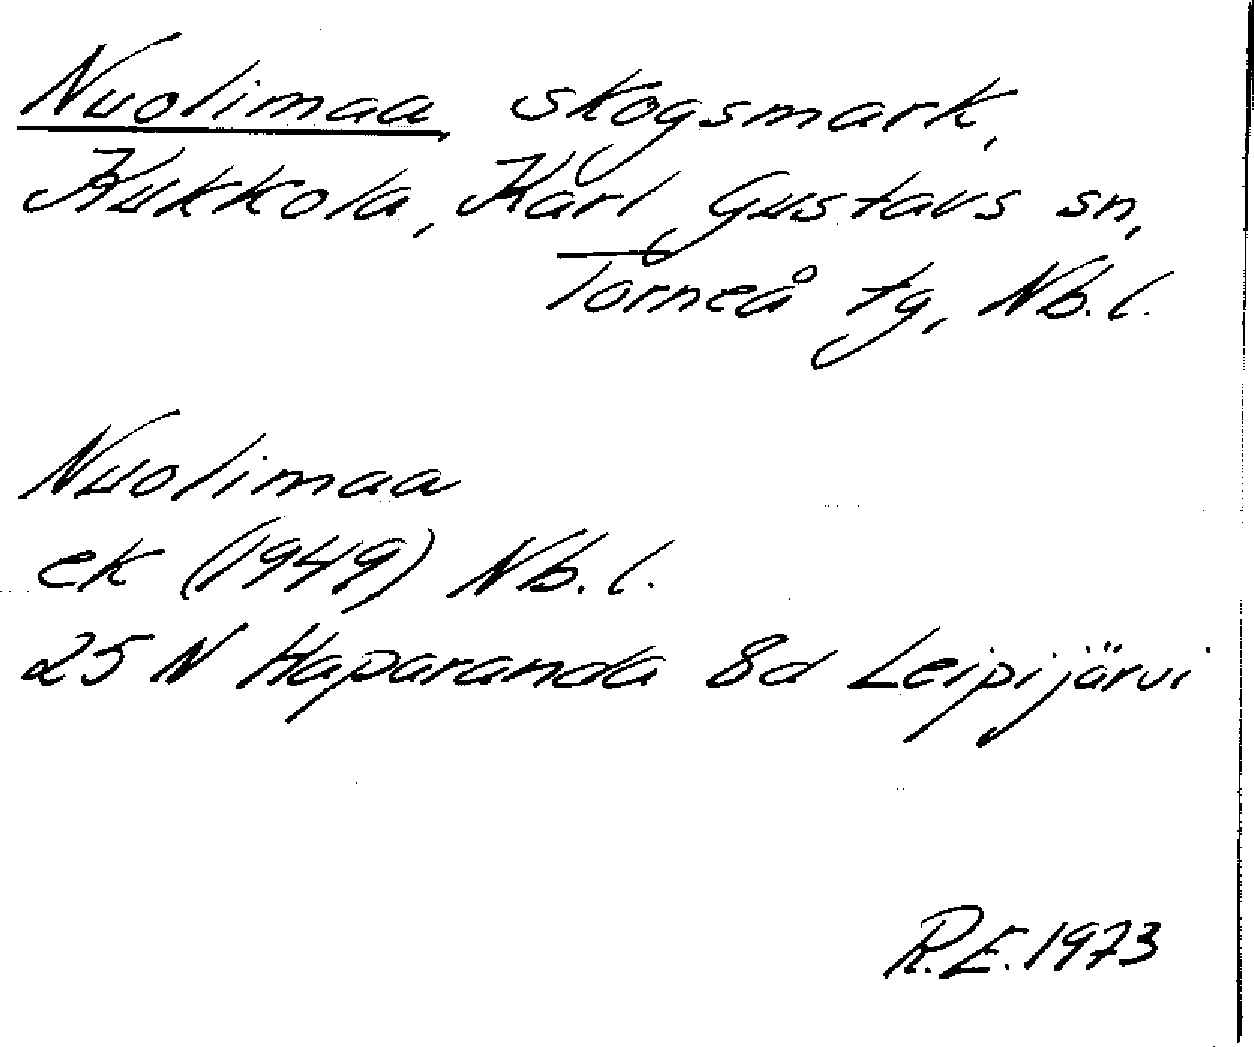 Nuolimaa skogsmark,
Kukkola, Karl Gustavs sn,
Torneå tg, Nb.l.
Nuolimaa
ek (1949) Nb.l.
25 N Haparanda 8d Leipijärvi
R.E. 1973